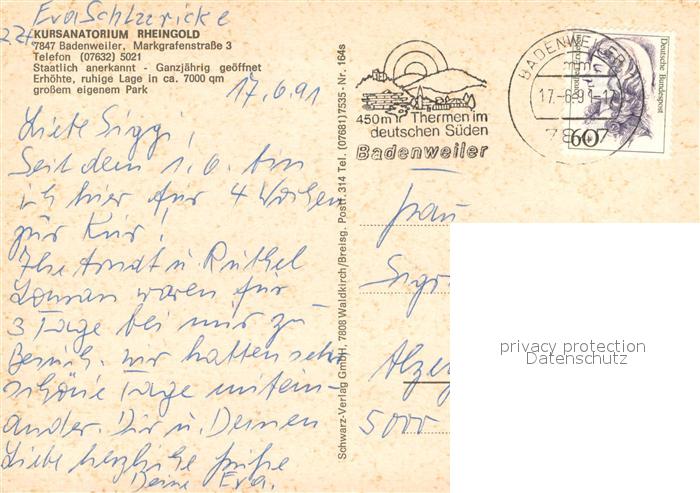 Eva
KURSANATORIUM RHEINGOLD
7847 Badenweiler, Markgrafenstraße 3
Telefon (07632) 5021
Staatlich anerkannt - Ganzjährig geöffnet
Erhöhte, ruhige Lage in ca. 7000 qm
großem eigenem Park
17.6.91
Liebe Siggi,
Seit dem 1.6. bin
ich hier für 4 Wochen
zur Kur!
Ruthel
waren für
3 Tage bei mir zu
Besuch. wir hatten sehr
schöne Tage mitein-
ander. Dir u. Deinen
Liebe herzliche Grüße
Deine Eva.
Schwarz-Verlag GmbH, 7808 Waldkirch/Breisg. Postf. 314 Tel. (07681) 7535 - Nr. 164s
450m Thermen im
deutschen Süden
Badenweiler
BADENWEILER
17.-6.91-17
Deutsche Bundespost
60
Frau
Sigr
Alzey
5000
privacy protection
Datenschutz